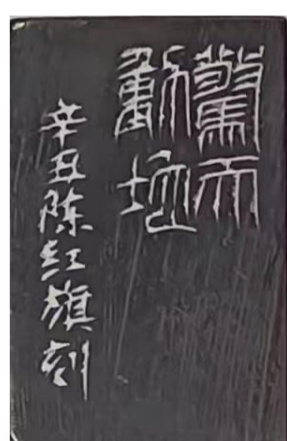 驚天
動地
辛丑陈红旗刻